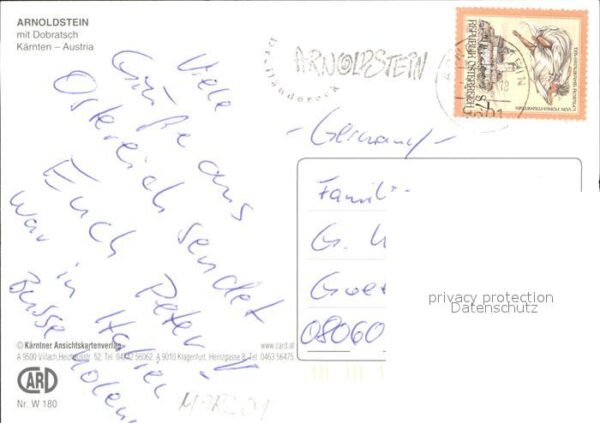 ARNOLDSTEIN
mit Dobratsch
Kärnten – Austria
Dreiländereck
ARNOLDSTEIN
REPUBLIK ÖSTERREICH
S 7
Viele
Grüße aus
Österreich sendet
Euch Peter!
War in Italien
Busse holen
- Germany -
Famil
Gr.
08060
privacy protection
Datenschutz
© Kärntner Ansichtskartenverlag
www.card.at
A 9500 Villach, Heidestr. 52; Tel. 04242 56062 A 9010 Klagenfurt, Heinzgasse 8, Tel. 0463 56475
CARD
Nr. W 180
MÄRZ 01